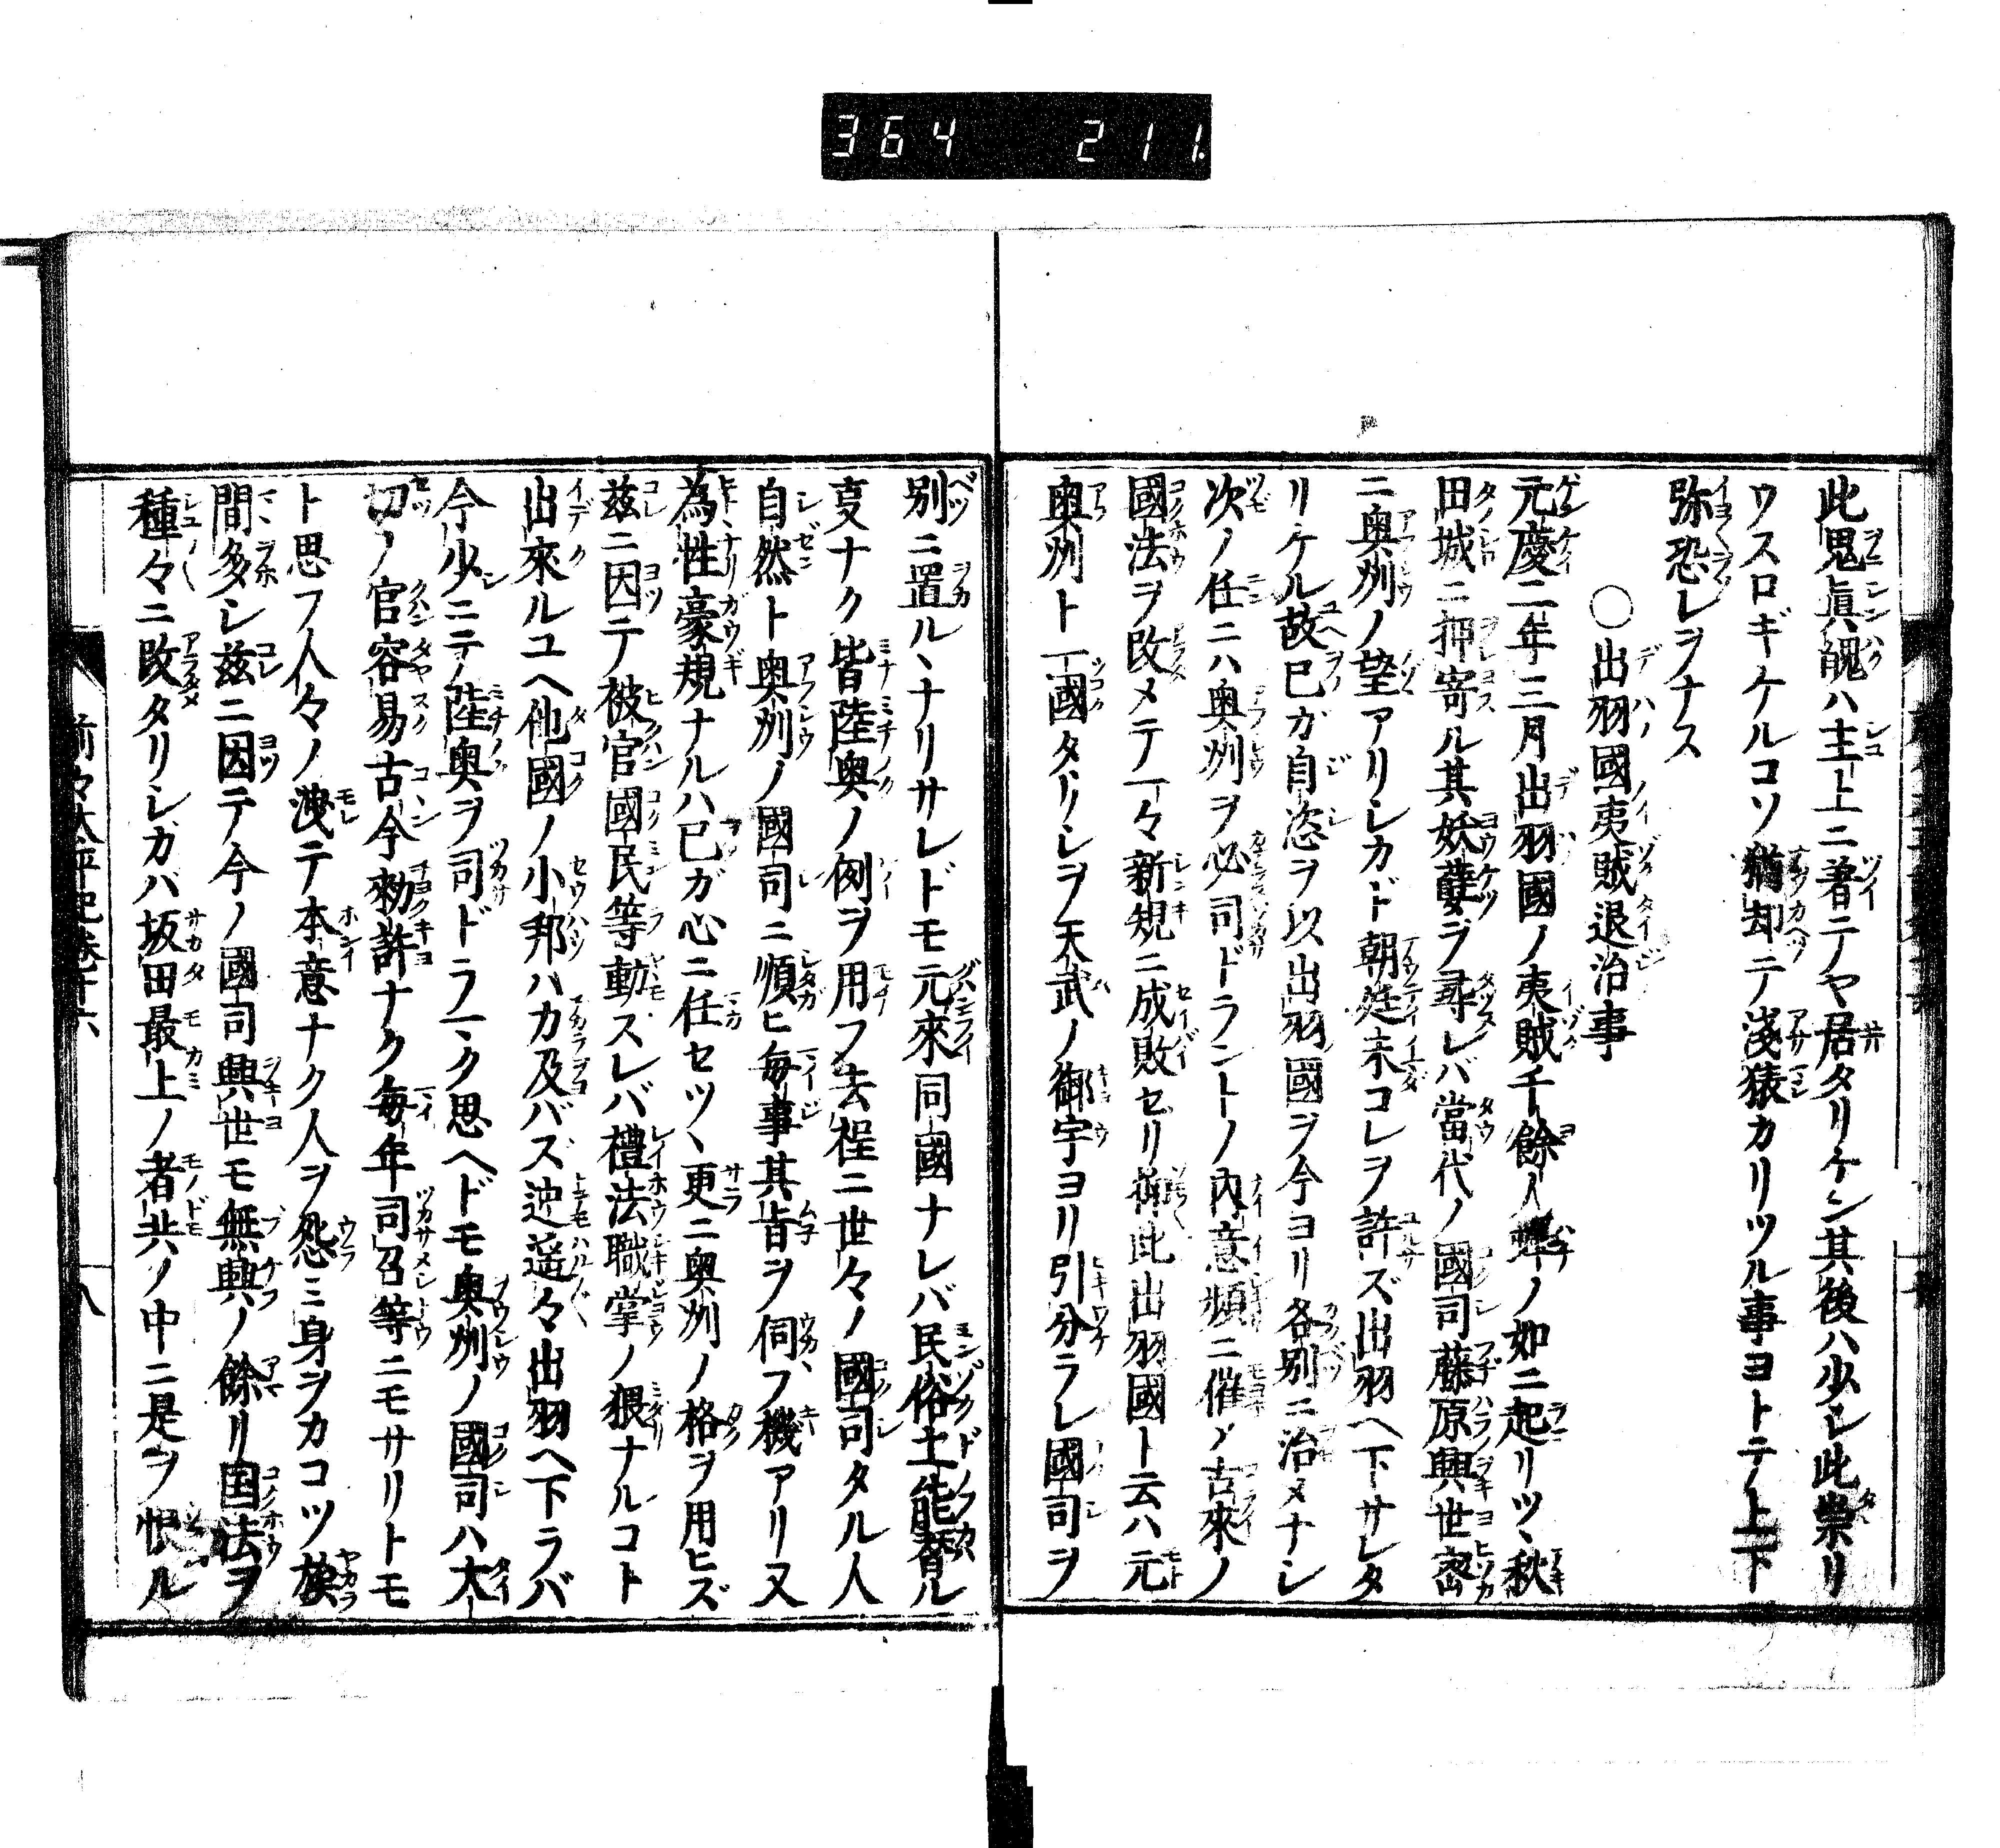 364 211.
此鬼眞醜ハ主上ニ著テヤ居タリケン其後ハ少シ此祟リ
ウスロギケルコソ猶却テ淺猿カリツル事ヨトテ上下
弥恐レヲナス
○出羽國夷賊退治事
元慶二年三月出羽國ノ夷賊千餘人蜂ノ如ニ起リツヽ秋
田城ニ押寄ル其妖孽ヲ尋レバ當代ノ國司藤原興世密
ニ奥州ノ望アリシカド朝廷未コレヲ許ズ出羽ヘ下サレタ
リケル故已ガ自恣ヲ以出羽國ヲ今ヨリ各別ニ治メナシ
次ノ任ニハ奥州ヲ必司ドラントノ內意頻ニ催メ古來ノ
國法ヲ改メテ一々新規ニ成敗セリ 此出羽國ト云ハ元
奥州ト一國タリシヲ天武ノ御宇ヨリ引分ラレ國司ヲ
別ニ置ルヽナリサレドモ元來同國ナレバ民俗土能替ル
叓ナク皆陸奥ノ例ヲ用フ去程ニ世々ノ國司タル人
自然ト奥州ノ國司ニ順ヒ毎事其旨ヲ伺フ機アリ又
為性豪規ナルハ已ガ心ニ任セツヽ更ニ奥州ノ格ヲ用ヒズ
茲ニ因テ被官國民等動スレバ禮法職掌ノ猥ナルコト
出來ルユヘ他國ノ小邦ハカ及バス迚遥々出羽ヘ下ラバ
今少ニテ陸奥ヲ司ドラマク思ヘドモ奥州ノ國司ハ大
切ノ官容易古今勅許ナク毎年司召等ニモサリトモ
ト思フ人々ノ洩テ本意ナク人ヲ怨ミ身ヲカコツ族
間多シ茲ニ因テ今ノ國司興世モ無興ノ餘リ国法ヲ
種々ニ改タリシカバ坂田最上ノ者共ノ中ニ是ヲ恨ル
前々太平記巻十六
八